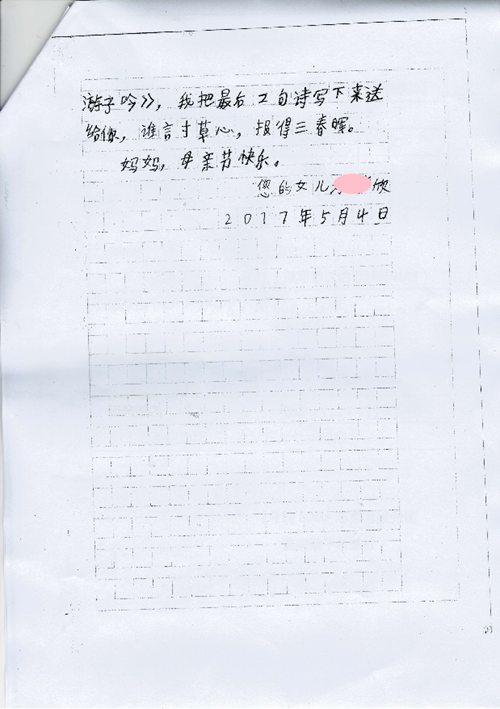 游子吟》，我把最后2句诗写下来送
给你，谁言寸草心，报得三春晖。
妈妈，母亲节快乐。
您的女儿 欣
2017年5月4日